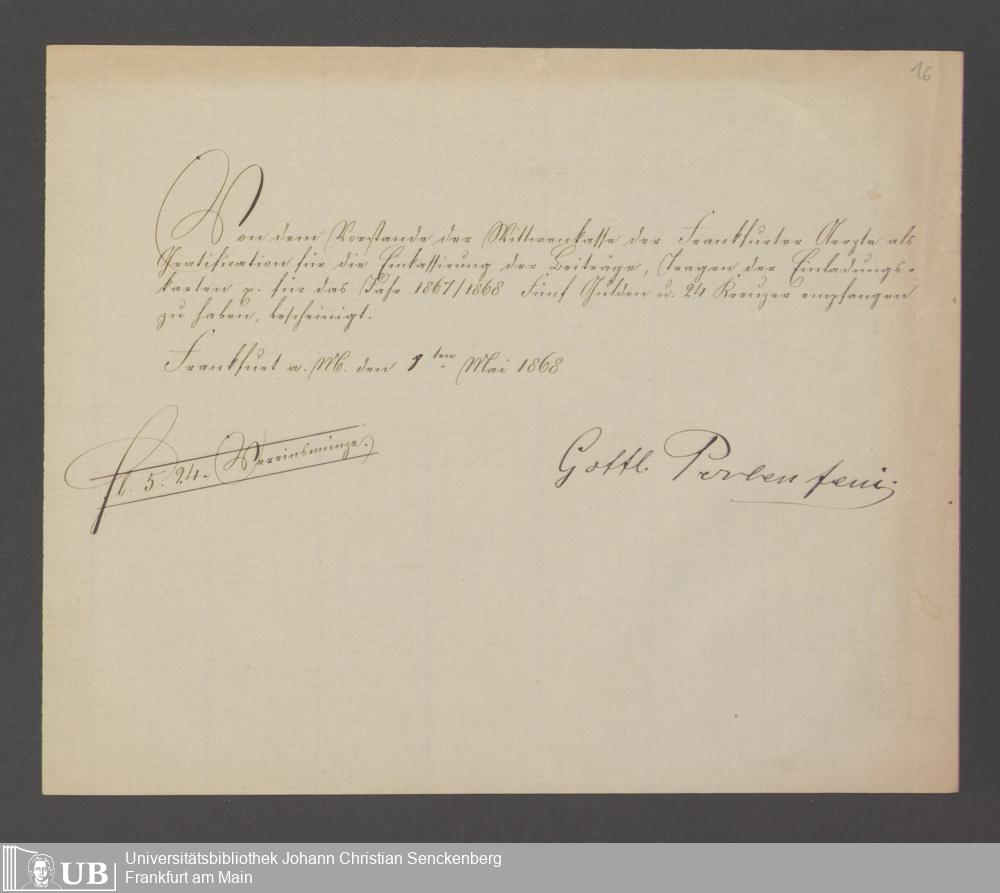 16
Von dem Vorstande der Wittwenkasse der Frankfurter Aerzte als
Gratification für die Einkassirung der Beiträge, Tragen der Einladungs-
karten p. für das Jahr 1867/1868 Fünf Gulden u. 24 Kreuzer empfangen
zu haben, bescheinigt.
Frankfurt a. M. den 1ten Mai 1868
fl. 5. 24. Vereinsmünze.
Gottl.
UB
Universitätsbibliothek Johann Christian Senckenberg
Frankfurt am Main